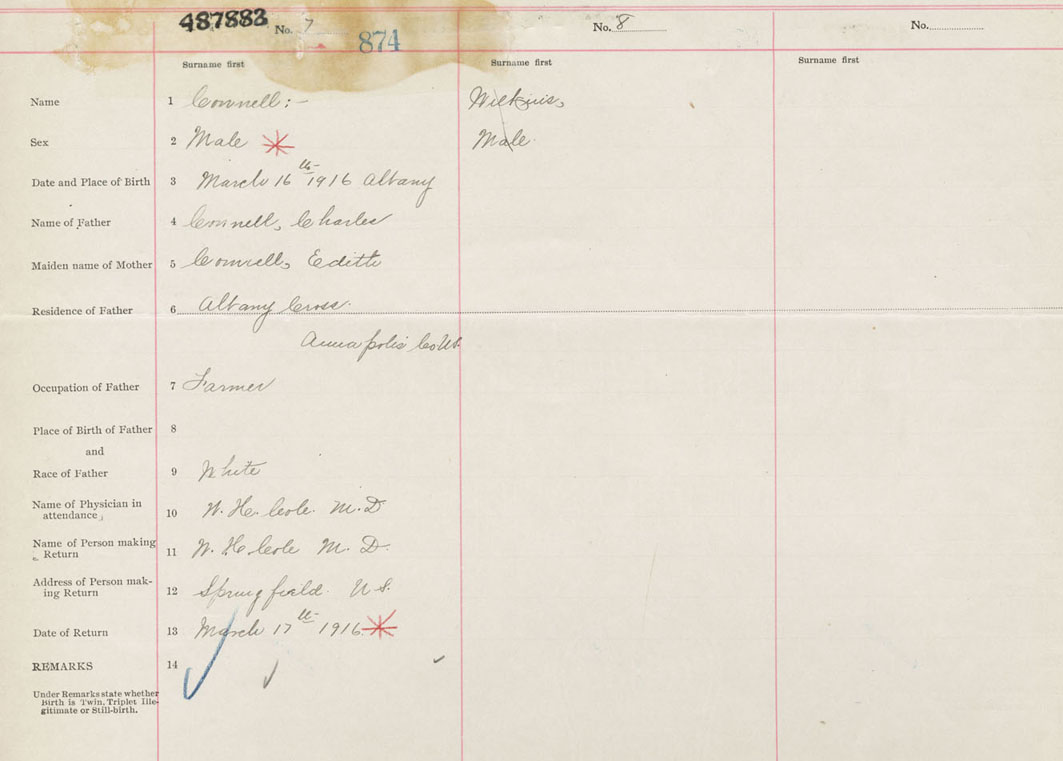 487883 No. 7 874
No. 8
No.
Surname first
Surname first
Surname first
Name 1 Connell :- Wilkins,
Sex 2 Male Male.
Date and Place of Birth 3 March 16th 1916 Albany
Name of Father 4 Connell, Charles
Maiden name of Mother 5 Connell, Edith
Residence of Father 6 Albany Cross.
Annapolis Co
Occupation of Father 7 Farmer
Place of Birth of Father 8
and
Race of Father 9 White
Name of Physician in
attendance 10 W. H. Cole. M.D
Name of Person making
Return 11 W. H. Cole M. D.
Address of Person mak-
ing Return 12 Springfield. N S.
Date of Return 13 March 17th 1916.
REMARKS 14
Under Remarks state whether
Birth is Twin, Triplet Ille-
gitimate or Still-birth.